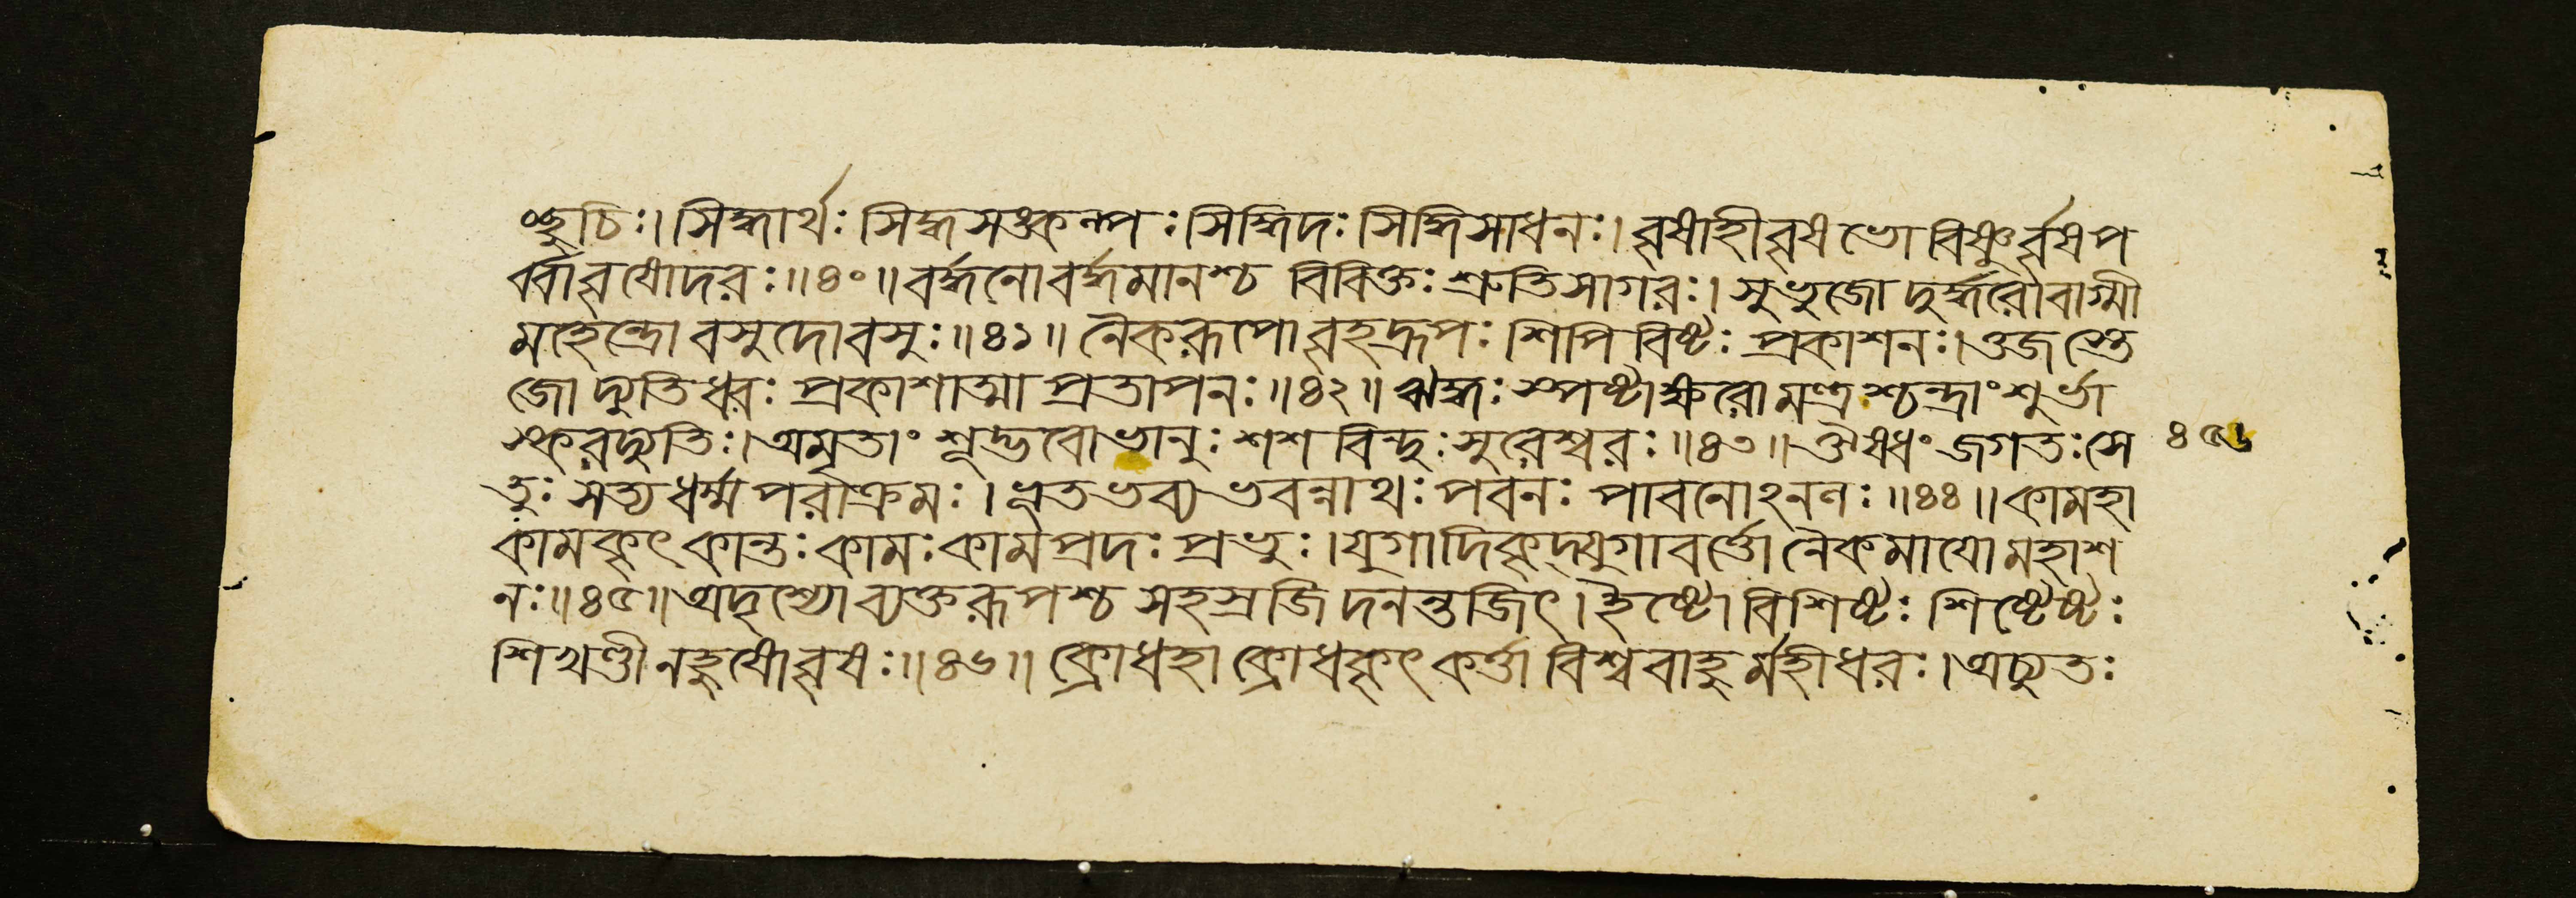 চ্ছুচিঃ। সিদ্ধার্থঃ সিদ্ধসঙ্কল্পঃ সিদ্ধিদঃ সিদ্ধিসাধনঃ। বৃষাহীবৃষভো বিষ্ণুর্বৃষপ
র্ব্বাবৃষোদরঃ॥৪০॥ বর্দ্ধনোবর্দ্ধমানশ্চ বিবিক্তঃ শ্রুতিসাগরঃ। সুভুজো দুর্দ্ধরোবাগ্মী
মহেন্দ্রোবসুদোবসুঃ॥৪১॥ নৈকরূপোবৃহদ্রূপঃ শিপিবিষ্টঃ প্রকাশনঃ। ওজস্তে
জোদ্যুতিধরঃ প্রকাশাত্মা প্রতাপনঃ॥৪২॥ ঋদ্ধঃ স্পষ্টাক্ষরোমন্ত্রশ্চন্দ্রাংশুর্ভা
স্করদ্যুতিঃ। অমৃতাংশূদ্ভবোভানুঃ শশবিন্দুঃ সুরেশ্বরঃ॥৪৩॥ ঔষধং জগতঃ সে
তুঃ সত্যধর্ম্মপরাক্রমঃ। ভূতভব্যভবন্নাথঃ পবনঃ পাবনোঽনলঃ॥৪৪॥ কামহা
কামকৃৎ কান্তঃ কামঃ কামপ্রদঃ প্রভুঃ। যুগাদিকৃদ্যুগাবর্ত্তো নৈকমাযোমহাশ
নঃ॥৪৫॥ অদৃশ্যোব্যক্তরূপশ্চ সহস্রজিদনন্তজিৎ। ইষ্টোবিশিষ্টঃ শিষ্টেষ্টঃ
শিখণ্ডীনহুষোবৃষঃ॥৪৬॥ ক্রোধহা ক্রোধকৃৎ কর্ত্তা বিশ্ববাহুর্মহীধরঃ। অচ্যুতঃ